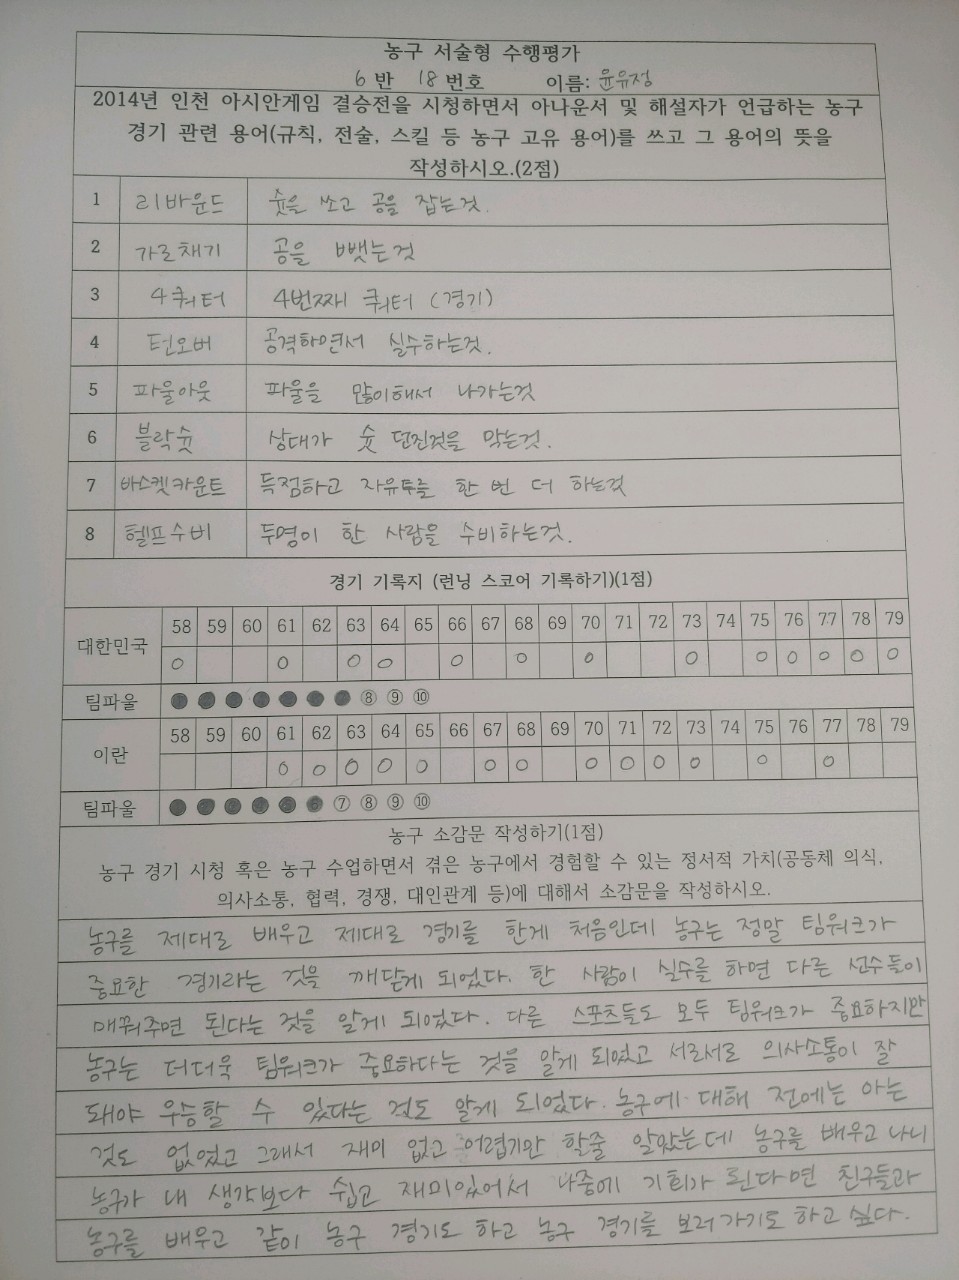 농구 서술형 수행평가
6 반 18 번호 이름: 윤유정
2014년 인천 아시안게임 결승전을 시청하면서 아나운서 및 해설자가 언급하는 농구
경기 관련 용어(규칙, 전술, 스킬 등 농구 고유 용어)를 쓰고 그 용어의 뜻을
작성하시오.(2점)
1 리바운드 슛을 쏘고 공을 잡는것.
2 가로채기 공을 뺏는것
3 4쿼터 4번째 쿼터 (경기)
4 턴오버 공격하면서 실수하는것.
5 파울아웃 파울을 많이해서 나가는것
6 블락슛 상대가 슛 던진것을 막는것.
7 바스켓카운트 득점하고 자유투를 한 번 더 하는것
8 헬프수비 두명이 한 사람을 수비하는것.
경기 기록지 (런닝 스코어 기록하기)(1점)
대한민국 58 59 60 61 62 63 64 65 66 67 68 69 70 71 72 73 74 75 76 77 78 79
○ ○ ○ ○ ○ ○ ○ ○ ○ ○ ○ ○ ○
팀파울 ● ● ● ● ● ● ● ⑧ ⑨ ⑩
이란 58 59 60 61 62 63 64 65 66 67 68 69 70 71 72 73 74 75 76 77 78 79
○ ○ ○ ○ ○ ○ ○ ○ ○ ○ ○ ○ ○
팀파울 ● ● ● ● ● ● ⑦ ⑧ ⑨ ⑩
농구 소감문 작성하기(1점)
농구 경기 시청 혹은 농구 수업하면서 겪은 농구에서 경험할 수 있는 정서적 가치(공동체 의식,
의사소통, 협력, 경쟁, 대인관계 등)에 대해서 소감문을 작성하시오.
농구를 제대로 배우고 제대로 경기를 한게 처음인데 농구는 정말 팀워크가
중요한 경기라는 것을 깨닫게 되었다. 한 사람이 실수를 하면 다른 선수들이
메꿔주면 된다는 것을 알게 되었다. 다른 스포츠들도 모두 팀워크가 중요하지만
농구는 더더욱 팀워크가 중요하다는 것을 알게 되었고 서로서로 의사소통이 잘
돼야 우승할 수 있다는 것도 알게 되었다. 농구에 대해 전에는 아는
것도 없었고 그래서 재미 없고 어렵기만 할줄 알았는데 농구를 배우고 나니
농구가 내 생각보다 쉽고 재미있어서 나중에 기회가 된다면 친구들과
농구를 배우고 같이 농구 경기도 하고 농구 경기를 보러가기도 하고 싶다.